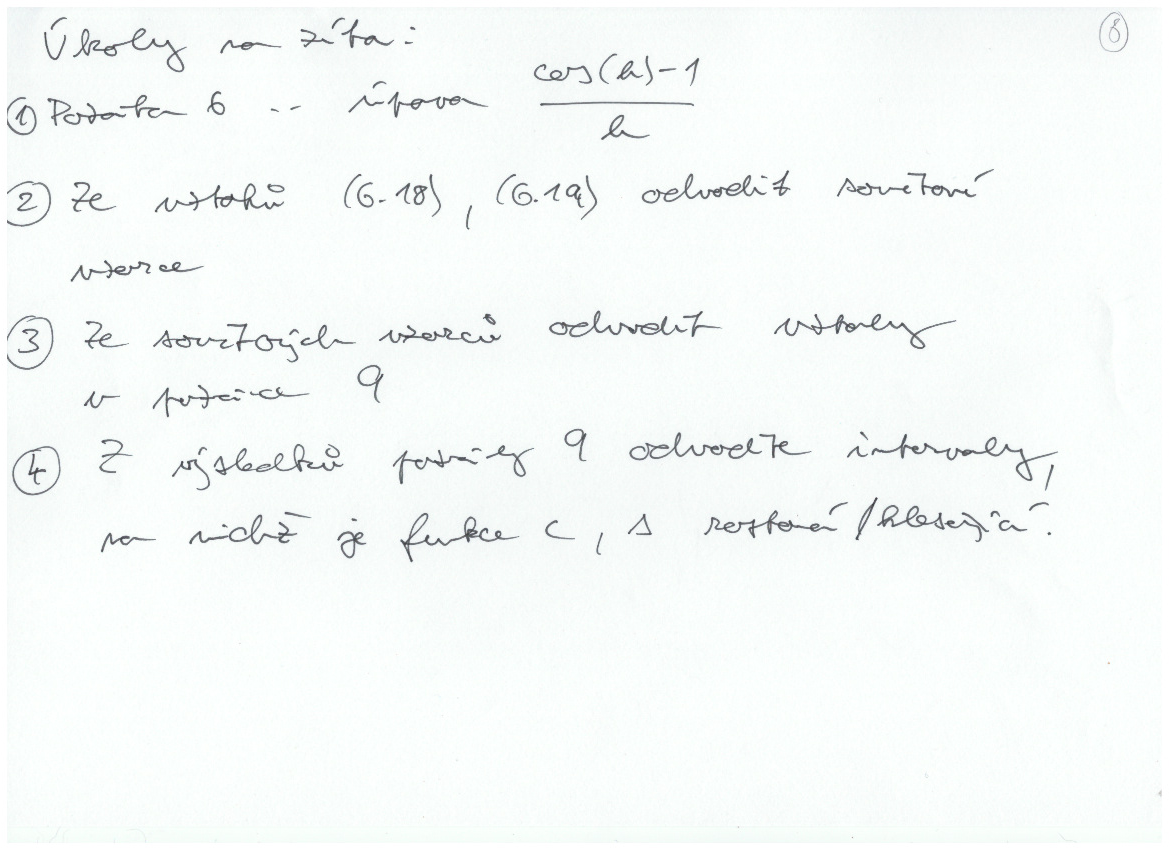 8
Úkoly na zítra:
① Poznámka 6 .. úprava (cos(h)-1)/h
② Ze vztahů (6.18), (6.19) odvodit součtové
vzorce
③ Ze součtových vzorců odvodit vztahy
v poznámce 9
④ Z výsledků poznámky 9 odvoďte intervaly,
na nichž je funkce c, s rostoucí/klesající.